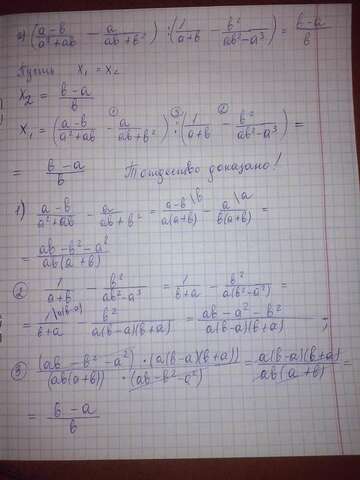 a) ((a-b)/(a²+ab) - a/(ab+b²)) : (1/(a+b) - b²/(ab²-a³)) = (b-a)/b
Пусть x₁ = x₂
x₂ = (b-a)/b
x₁ = ((a-b)/(a²+ab) -① a/(ab+b²)) :③ (1/(a+b) -② b²/(ab²-a³)) =
= (b-a)/b Тождество доказано!
1) (a-b)/(a²+ab) - a/(ab+b²) = (a-b)\b/(a(a+b)) - a\a/(b(a+b)) =
= (ab-b²-a²)/(ab(a+b))
② 1/(a+b) - b²/(ab²-a³) = 1/(b+a) - b²/(a(b²-a²)) =
= 1\a(b-a)/(b+a) - b²/(a(b-a)(b+a)) = (ab-a²-b²)/(a(b-a)(b+a)) ;
③ ((ab-b²-a²)·(a(b-a)(b+a)))/((ab(a+b))·(ab-b²-a²)) = (a(b-a)(b+a))/(ab(a+b)) =
= (b-a)/b